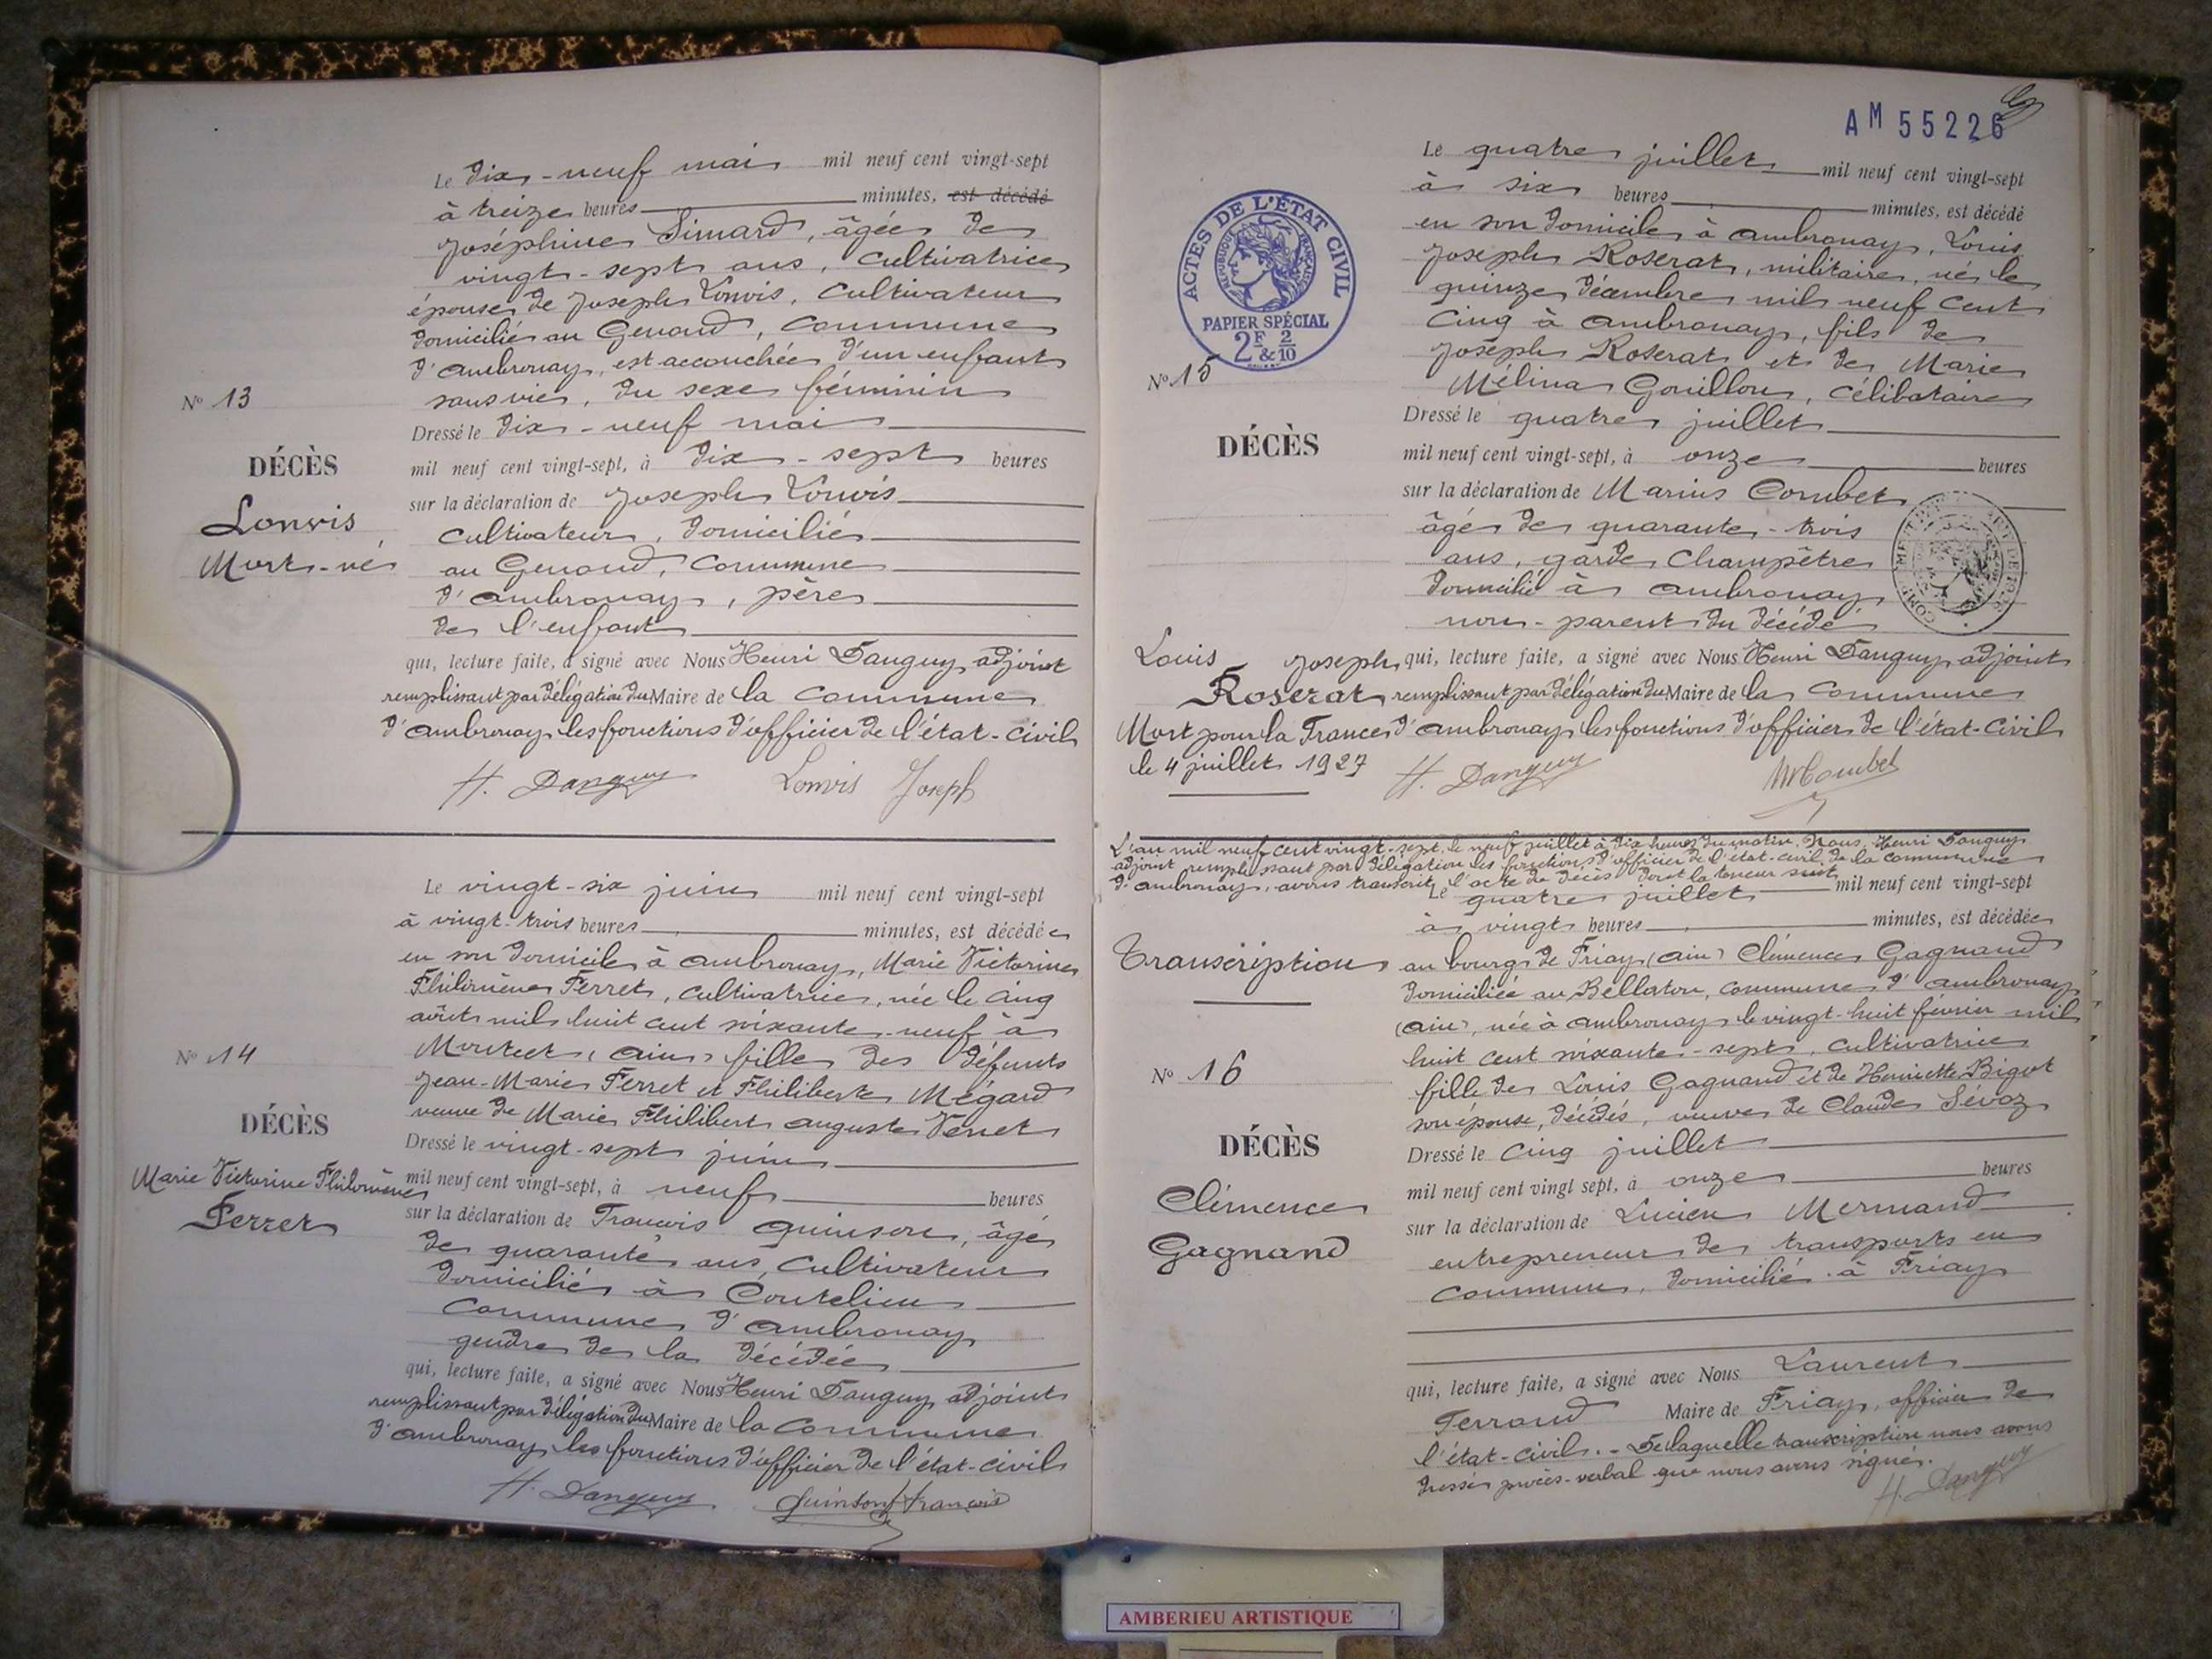 Le dix-neuf mai mil neuf cent vingt-sept
à treize heures minutes, est décédé
Joséphine Simard, âgée de
vingt-sept ans, cultivatrice
épouse de Joseph Lonvis, cultivateur
domiciliés au Genoud, commune
d'Ambronay, est accouchée d'un enfant
sans vie, du sexe féminin
Nº 13
Dressé le dix-neuf mai
DÉCÈS
mil neuf cent vingt-sept, à dix-sept heures
Lonvis
Mort-né
sur la déclaration de Joseph Lonvis
cultivateur, domicilié
au Genoud, commune
d'Ambronay, père
de l'enfant
qui, lecture faite, a signé avec Nous Henri Danguy, adjoint
remplissant par délégation du Maire de la commune
d'Ambronay les fonctions d'officier de l'état-civil
H. Danguy Lonvis Joseph
Le vingt-six juin mil neuf cent vingt-sept
à vingt-trois heures minutes, est décédée
en son domicile à Ambronay, Marie Victorine
Philomène Ferret, cultivatrice, née le cinq
août mil huit cent soixante-neuf à
Montcet (Ain) fille des défunts
Jean-Marie Ferret et Philiberte Mégard
veuve de Marie Philibert Auguste Venet
Nº 14
DÉCÈS
Marie Victorine Philomène
Ferret
Dressé le vingt-sept juin
mil neuf cent vingt-sept, à neuf heures
sur la déclaration de François Quinson, âgé
de quarante ans, cultivateur
domicilié à Coutelieu
commune d'Ambronay
gendre de la décédée
qui, lecture faite, a signé avec Nous Henri Danguy, adjoint
remplissant par délégation du Maire de la commune
d'Ambronay les fonctions d'officier de l'état-civil
H. Danguy Quinson François
AM 55226
ACTES DE L'ÉTAT CIVIL
RÉPUBLIQUE FRANÇAISE
PAPIER SPÉCIAL
2F & 2/10
Le quatre juillet mil neuf cent vingt-sept
à six heures minutes, est décédé
en son domicile à Ambronay, Louis
Joseph Roserat, militaire, né le
quinze décembre mil neuf cent
cinq à Ambronay, fils de
Joseph Roserat et de Marie
Mélina Gouillon, célibataire
Nº 15
DÉCÈS
Dressé le quatre juillet
mil neuf cent vingt-sept, à onze heures
sur la déclaration de Marius Combet
âgé de quarante-trois
ans, garde champêtre
domicilié à Ambronay
non-parent du décédé
Louis Joseph
Roserat
Mort pour la France
le 4 juillet 1927
qui, lecture faite, a signé avec Nous Henri Danguy, adjoint
remplissant par délégation du Maire de la commune
d'Ambronay les fonctions d'officier de l'état-civil
H. Danguy M Combet
L'an mil neuf cent vingt-sept, le neuf juillet à dix heures du matin, Nous, Henri Danguy
adjoint remplissant par délégation les fonctions d'officier de l'état-civil de la commune
d'Ambronay, avons transcrit l'acte de décès dont la teneur suit
Le quatre juillet mil neuf cent vingt-sept
à vingt heures minutes, est décédée
Transcription
au bourg de Priay (Ain) Clémence Gagnand
domiciliée au Bellaton, commune d'Ambronay
(Ain), née à Ambronay le vingt-huit février mil
huit cent soixante-sept, cultivatrice
fille de Louis Gagnand et de Henriette Bigot
son épouse, décédés, veuve de Claude Sévoz
Nº 16
DÉCÈS
Clémence
Gagnand
Dressé le cinq juillet
mil neuf cent vingt sept, à onze heures
sur la déclaration de Lucien Mermand
entrepreneur de transports en
commun, domicilié à Priay
qui, lecture faite, a signé avec Nous Laurent
Terraud Maire de Priay, officier de
l'état-civil. - De laquelle transcription nous avons
dressé procès-verbal que nous avons signé.
H. Danguy
AMBERIEU ARTISTIQUE